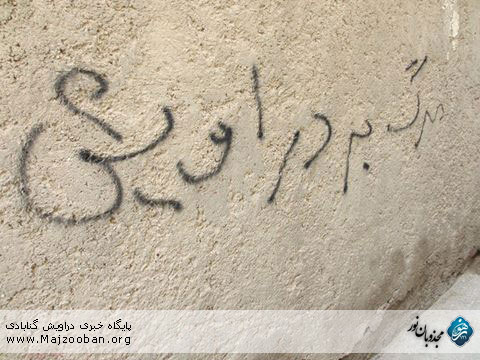 مرگ بر دراویش
پایگاه خبری دراویش گنابادی
www.Majzooban.org
مجذوبان نور
نور